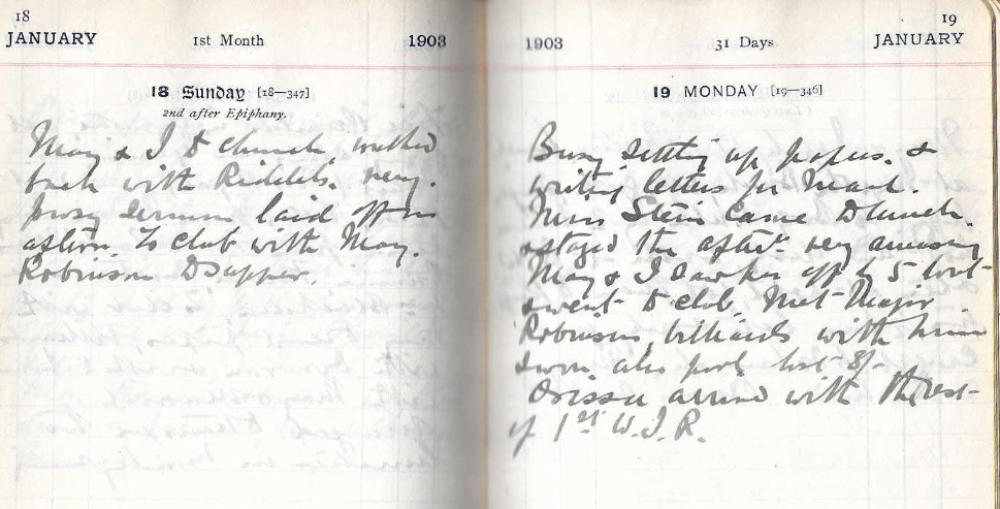 18
JANUARY 1st Month 1903
18 Sunday [18—347]
2nd after Epiphany.
May & I to church, walked
back with Riddels. very.
prosy sermon laid off in
aftern To club with May.
Robinson to supper.
19
1903 31 Days JANUARY
19 MONDAY [19—346]
Busy setting up papers. &
writing letters for mail.
Miss Stein came to lunch.
& stayed the aftern very amusing
May & I off by 5
& went to club. Met Major
Robinson, billiards with him
& won also pool lost 8/-
Orissa arrived with the rest
of 1st W.I.R.